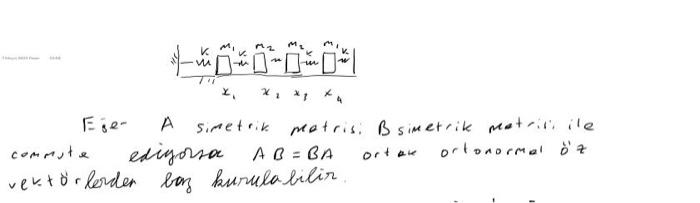 K m₁ K m₂ m₂ K m₁ K
x₁ x₂ x₃ x₄
Eğer A simetrik matrisi B simetrik matrisi ile
commute ediyorsa AB = BA ortak ortonormal öz
vektörlerden baz kurulabilir.